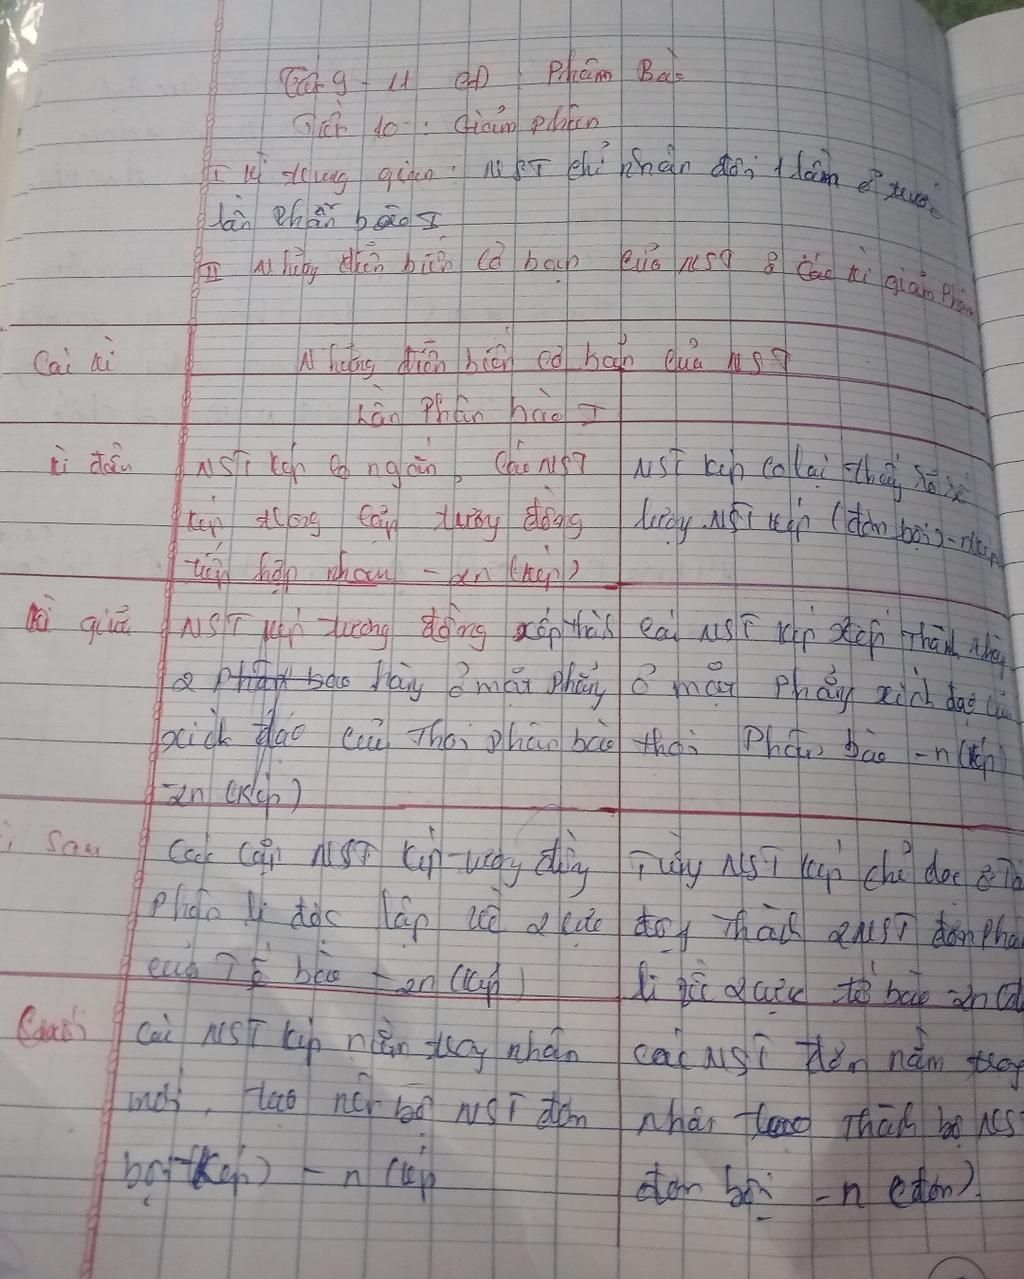 Phâm Bào
Tiết 10: Giảm phân
I Kì trung gian: NST chỉ nhân đôi 1 lần ở trước
lần phân bào I
II Những diễn biến cơ bản của NST ở các kì giảm phân
Các kì
Những diễn biến cơ bản của NST
Lần phân bào I
Kì đầu
NST kép co ngắn, các NST
kép trong cặp tương đồng
tiếp hợp nhau - 2n (kép)
NST kép co lại thấy số
lượng NST kép (đơn bội) - n kép
Kì giữa
NST kép tương đồng xếp thành
2 phân bào hàng ở mặt phẳng
xích đạo của thoi phân bào
2n (kép)
các NST kép xếp thành
ở mặt phẳng xích đạo của
thoi phân bào - n (kép)
Kì sau
các cặp NST kép tương đồng
phân li độc lập về 2 cực
của tế bào - 2n (kép)
Từng NST kép chẻ dọc ở
động thành 2 NST đơn phân
li về 2 cực tế bào 2n
Cuối
các NST kép nằm trong nhân
mới, tạo nên bộ NST đơn
bội (kép) - n (kép
các NST đơn nằm trong
nhân tạo thành bộ NST
đơn bội - n (đơn).